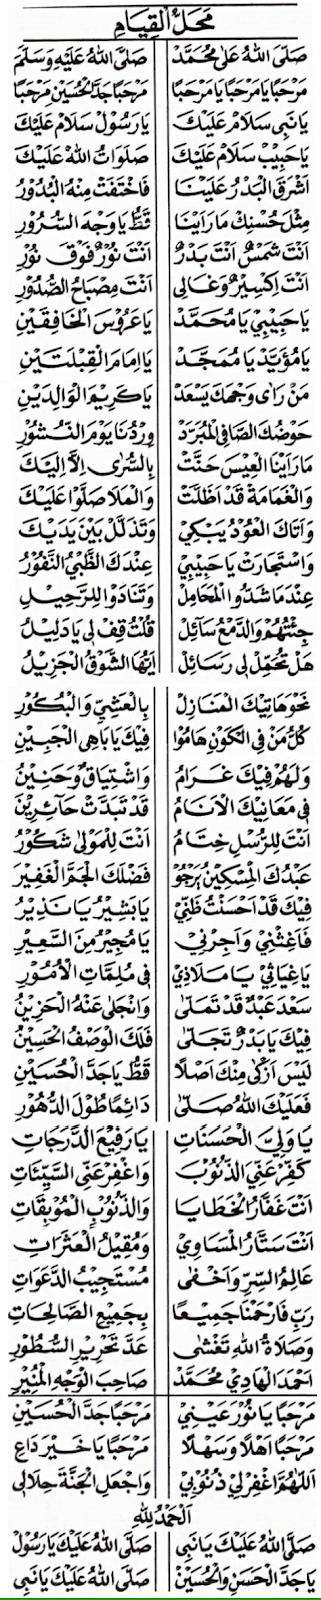 مَحَلُّ الْقِيَامِ
صَلَّى اللهُ عَلَى مُحَمَّدْ صَلَّى اللهُ عَلَيْهِ وَسَلَّمَ
مَرْحَبًا يَا مَرْحَبًا يَا مَرْحَبًا مَرْحَبًا جَدَّ الْحُسَيْنِ مَرْحَبًا
يَا نَبِي سَلَامْ عَلَيْكَ يَا رَسُوْلْ سَلَامْ عَلَيْكَ
يَا حَبِيْبْ سَلَامْ عَلَيْكَ صَلَوَاتُ اللهْ عَلَيْكَ
اَشْرَقَ الْبَدْرُ عَلَيْنَا فَاخْتَفَتْ مِنْهُ الْبُدُوْرُ
مِثْلَ حُسْنِكْ مَا رَاَيْنَا قَطُّ يَا وَجْهَ السُّرُوْرِ
اَنْتَ شَمْسٌ اَنْتَ بَدْرٌ اَنْتَ نُوْرٌ فَوْقَ نُوْرِ
اَنْتَ اِكْسِيْرٌ وَغَالِى اَنْتَ مِصْبَاحُ الصُّدُوْرِ
يَا حَبِيْبِيْ يَا مُحَمَّدْ يَا عَرُوْسَ الْخَافِقَيْنِ
يَا مُؤَيَّدْ يَا مُمَجَّدْ يَا اِمَامَ الْقِبْلَتَيْنِ
مَنْ رَاٰى وَجْهَكَ يَسْعَدْ يَا كَرِيْمَ الْوَالِدَيْنِ
حَوْضُكَ الصَّافِى الْمُبَرَّدْ وِرْدُنَا يَوْمَ النُّشُوْرِ
مَا رَاَيْنَا الْعِيْسَ حَنَّتْ بِالسُّرٰى اِلَّا اِلَيْكَ
وَالْغَمَامَةْ قَدْ اَظَلَّتْ وَالْمَلَا صَلَّوْا عَلَيْكَ
وَاَتَاكَ الْعُوْدُ يَبْكِيْ وَتَذَلَّلْ بَيْنَ يَدَيْكَ
وَاسْتَجَارَتْ يَا حَبِيْبِيْ عِنْدَكَ الظَّبْيُ النُّفُوْرُ
عِنْدَمَا شَدُّوا الْمَحَامِلْ وَتَنَادَوْا لِلرَّحِيْلِ
جِئْتُهُمْ وَالدَّمْعُ سَآئِلْ قُلْتُ قِفْ لِيْ يَا دَلِيْلُ
هَلْ تُحَمِّلْ لِيْ رَسَائِلْ اَيُّهَا الشَّوْقُ الْجَزِيْلُ
نَحْوَ هَاتِيْكَ الْمَنَازِلْ بِالْعَشِيِّ وَالْبُكُوْرِ
كُلُّ مَنْ فِى الْكَوْنِ هَامُوْا فِيْكَ يَا بَاهِى الْجَبِيْنِ
وَلَهُمْ فِيْكَ غَرَامٌ وَاشْتِيَاقٌ وَحَنِيْنُ
فِى مَعَانِيْكَ الْاَنَامُ قَدْ تَبَدَّتْ حَآئِرِيْنَ
اَنْتَ لِلرُّسْلِ خِتَامٌ اَنْتَ لِلْمَوْلٰى شَكُوْرُ
عَبْدُكَ الْمِسْكِيْنُ يَرْجُوْ فَضْلَكَ الْجَمَّ الْغَفِيْرَ
فِيْكَ قَدْ اَحْسَنْتُ ظَنِّيْ يَا بَشِيْرُ يَا نَذِيْرُ
فَاَغِثْنِيْ وَاَجِرْنِيْ يَا مُجِيْرُ مِنَ السَّعِيْرِ
يَا غِيَاثِيْ يَا مَلَاذِيْ فِى مُلِمَّاتِ الْاُمُوْرِ
سَعْدَ عَبْدٌ قَدْ تَمَلّٰى وَانْجَلٰى عَنْهُ الْحَزِيْنُ
فِيْكَ يَا بَدْرٌ تَجَلّٰى فَلَكَ الْوَصْفُ الْحَسِيْنُ
لَيْسَ اَزْكٰى مِنْكَ اَصْلًا قَطُّ يَا جَدَّ الْحُسَيْنِ
فَعَلَيْكَ اللهُ صَلّٰى دَائِمًا طُوْلَ الدُّهُوْرِ
يَا وَلِيَّ الْحَسَنَاتِ يَا رَفِيْعَ الدَّرَجَاتِ
كَفِّرْ عَنِّيَ الذُّنُوْبَ وَاغْفِرْ عَنِّى السَّيِّئَاتِ
اَنْتَ غَفَّارُ الْخَطَايَا وَالذُّنُوْبِ الْمُوْبِقَاتِ
اَنْتَ سَتَّارُ الْمَسَاوِيْ وَمُقِيْلُ الْعَثَرَاتِ
عَالِمُ السِّرِّ وَاَخْفٰى مُسْتَجِيْبُ الدَّعَوَاتِ
رَبِّ فَارْحَمْنَا جَمِيْعًا بِجَمِيْعِ الصَّالِحَاتِ
وَصَلَاةُ اللهِ تَغْشٰى عَدَّ تَحْرِيْرِ السُّطُوْرِ
اَحْمَدَ الْهَادِيْ مُحَمَّدْ صَاحِبَ الْوَجْهِ الْمُنِيْرِ
مَرْحَبًا يَا نُوْرَ عَيْنِيْ مَرْحَبًا جَدَّ الْحُسَيْنِ
مَرْحَبًا اَهْلًا وَسَهْلًا مَرْحَبًا يَا خَيْرَ دَاعِ
اَللّٰهُمَّ اغْفِرْ لِيْ ذُنُوْبِيْ وَاجْعَلِ الْجَنَّةَ حَلَالِى
اَلْحَمْدُ لِلّٰهِ
صَلَّى اللهْ عَلَيْكَ يَا نَبِى صَلَّى اللهْ عَلَيْكَ يَا رَسُوْلْ
يَا جَدَّ الْحَسَنْ وَالْحُسَيْنْ صَلَّى اللهْ عَلَيْكَ يَا نَبِى